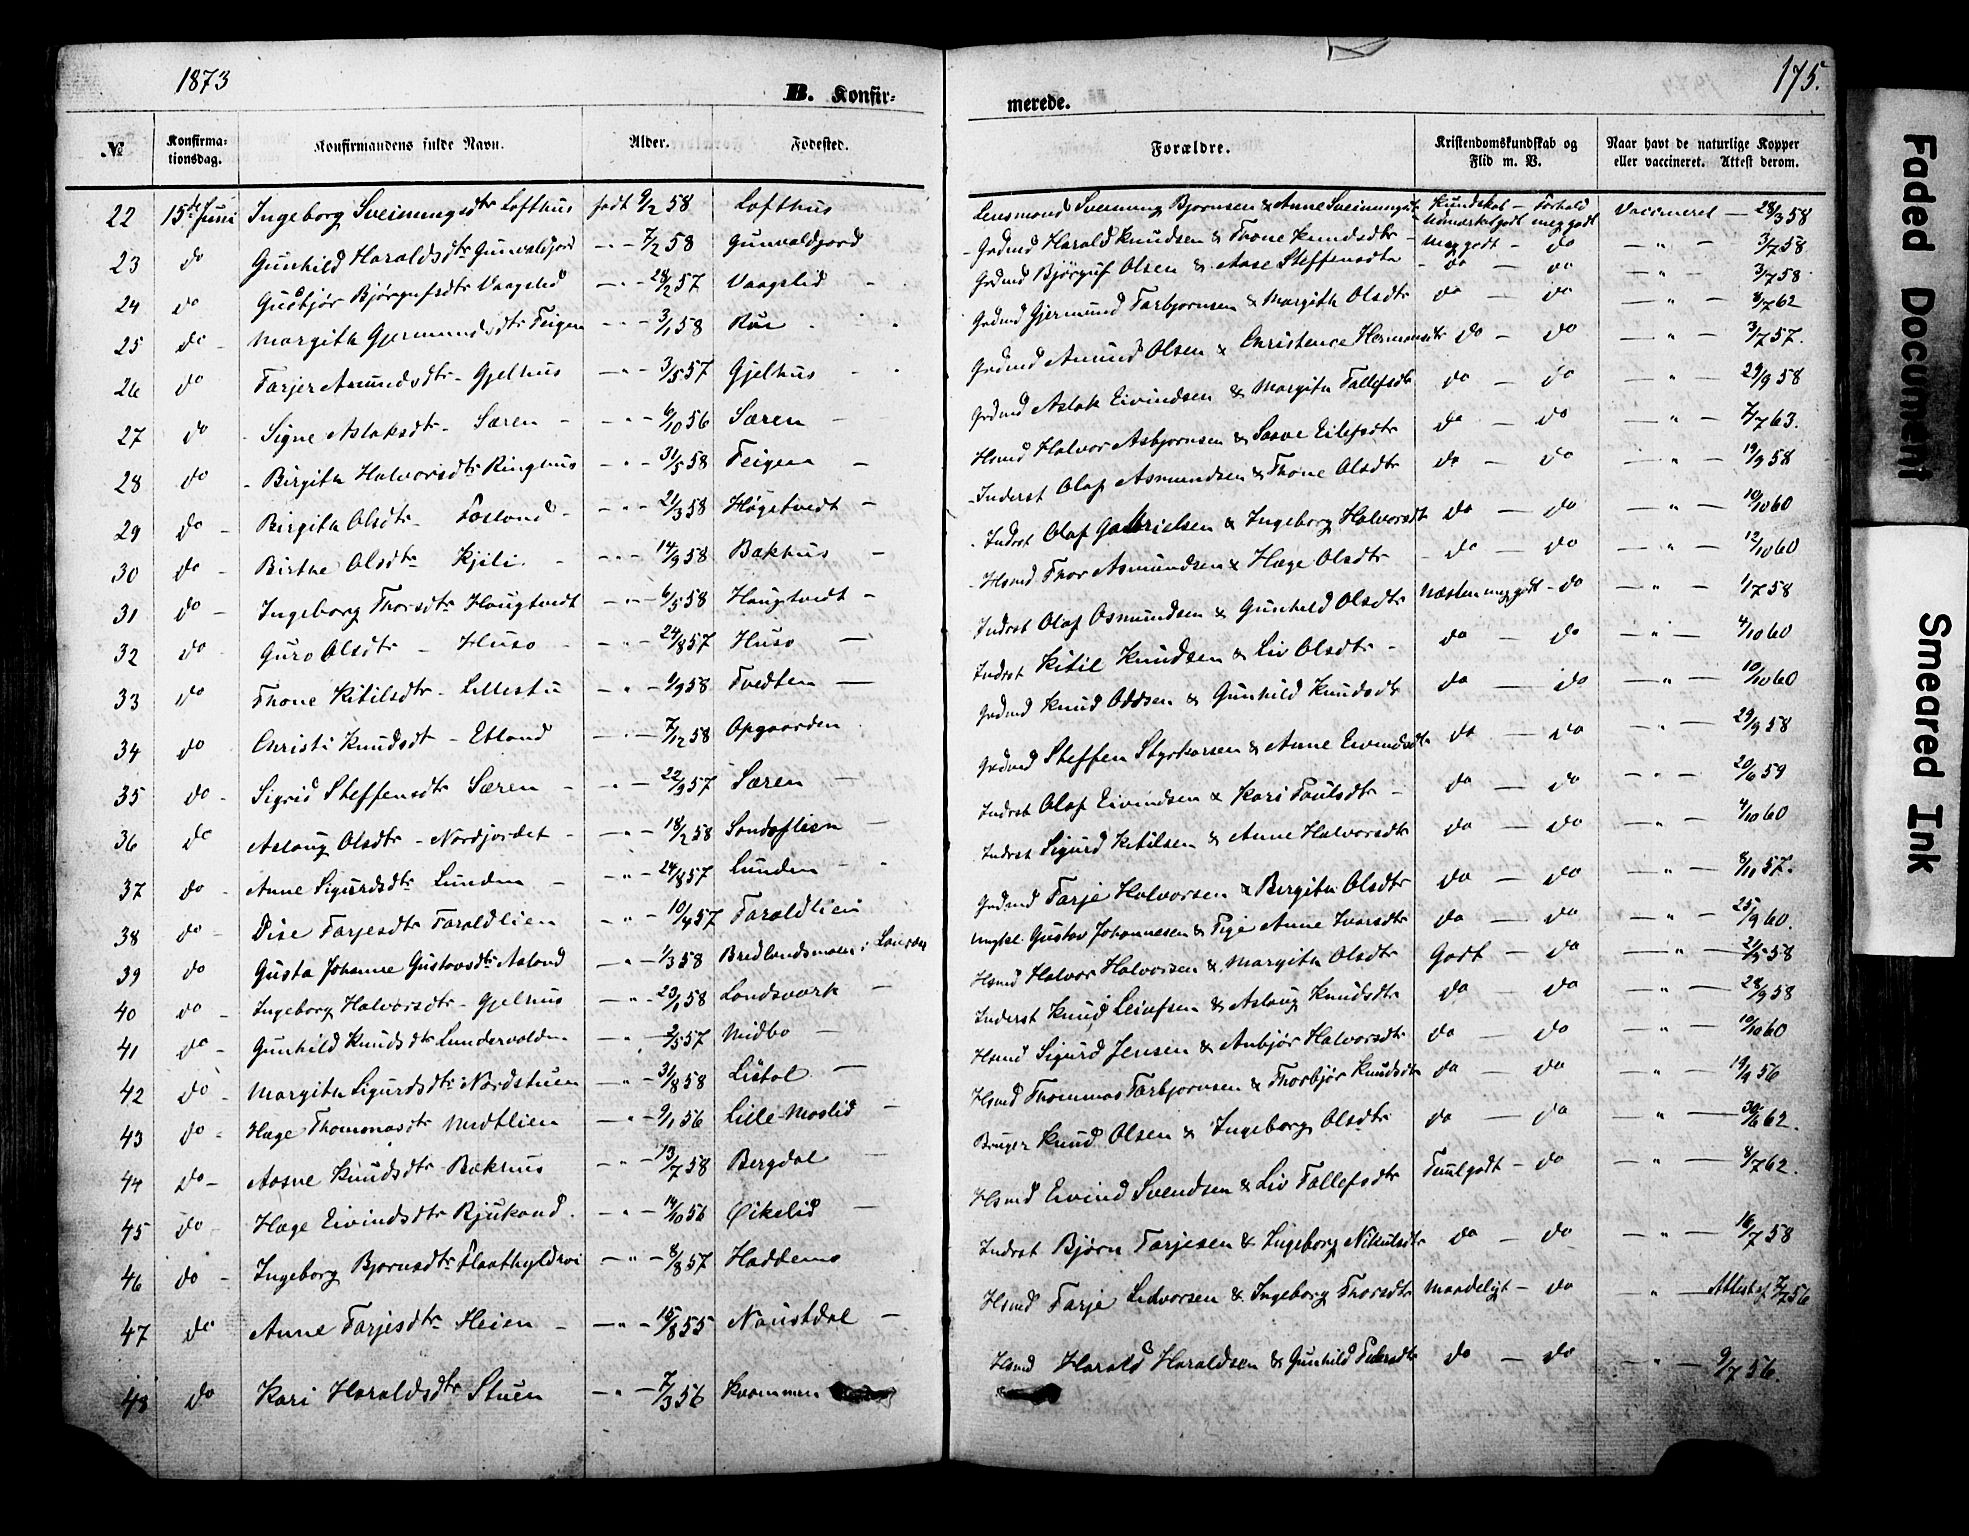 1873
B. Konfir-
merede.
175.
№ Konfirma-tionsdag. Konfirmandens fulde Navn. Alder. Fødested. Forældre. Kristendomskundskab og Flid m. V. Naar havt de naturlige Kopper eller vaccineret. Attest derom.
22 15de Juni Ingeborg Sveinungsdtr Lofthus født 9/2 58 Lofthus Lensmand Sveinung Bjørnsen & Anne Kundskab - Forhold meg godt Vaccineret - 28/3 58
23 do Gunhild Haraldsdtr Gunvaldjord -"- 7/2 58 Gunvaldjord Grdmd Harald Knudsen & Thone Knudsdtr - meg godt - do -"- 3/7 58
24 do Gudbjør Bjørgufsdtr Vaagslid -"- 28/2 57 Vaagslid - Grdmd Bjørguf Olsen & Aase Steffensdtr - do - do -"- 3/7 58
25 do - Margitha Gjermundsdtr Teigen -"- 3/1 58 Grdmd Gjermund Tarbjørnsen & Margith Olsdtr do - do -"- 8/7 62
26 do Tarjer Amundsdtr - Gjelhus -"- 3/5 57 Gjelhus - Grdmd Amund Olsen & Christence do - do -"- 3/7 57.
27 do - Signe Aslaksdtr - Særen - -"- 6/10 56 Særen - Grdmd Aslak Eivindsen & Margith Tallefsdtr do - do -"- 29/9 58
28 do - Birgith Halvorsdtr Ringhus -"- 31/5 58 Teigen - Hsmd Halvor Asbjørnsen & Eilefsdtr do - do -"- 7/7 63.
29 do - Birgitha Olsdtr - -"- 21/3 58 Høgetvedt - - Inderst Olaf Asmundsen & Thone Olsdtr do - do -"- 19/9 58
30 do - Birthe Olsdtr Kjili. - -"- 14/9 58 Bakhus - Indrst Olaf Gabrielsen & Ingeborg Halvorsdt do - do -"- 10/10 60
31 do - Ingeborg Thorsdtr Haugtvedt -"- 6/5 58 Haugtvedt - Hsmd Thor Asmundsen & Hæge Olsdtr - do - do -"- 12/10 60
32 do Guro Olsdtr - Huso - -"- 24/8 57 Huso - Indrst Olaf Osmundsen & Gunhild Olsdtr Næsten meg godt - do -"- 1/7 58
33 do Thone Kitilsdtr - Lillestu -"- 1/9 58 Tvedten - Indrst Kitil Knudsen & Liv Olsdtr - do - do -"- 4/10 60
34 do Christi Knudsdt - Etland -"- 7/12 58 Opgaarden Grdmd Knud Oddsen & Gunhild Knudsdtr do - do -"- 10/10 60
35 do - Sigrid Steffensdtr Særen - -"- 22/9 57 Særen - Grdmd Steffen Styrkarsen & Anne Eivindsdtr do - do -"- 29/9 58
36 do Aslaug Olsdtr - Nordjordet - -"- 18/2 58 - Indrst Olaf Eivindsen & Kari Paulsdtr - do - do -"- 20/6 59
37 do - Anne Sigurdsdtr Lunden - -"- 24/8 57 Lunden - Indrst Sigurd Kitilsen & Anne Halvorsdtr do - do -"- 4/10 60
38 do - Dise Tarjesdtr Taraldlien -"- 10/4 57 Taraldlien Grdmd Tarje Halvorsen & Bergitha Olsdtr do - do -"- 8/11 57.
39 do Gusta Johanne Gustavsdtr Aaland -"- 1/3 58 Bredlandsmoen i Ungkl. Gustav Johannesen & Pige Anne Ivarsdtr do - do -"- 25/9 60.
40 do - Ingeborg Halvorsdtr - Gjelhus -"- 23/1 58 Landsværk - Hsmd Halvor Halvorsen & Margith Olsdtr Godt - do -"- 21/5 58
41 do - Gunhild Knudsdtr -"- 2/5 57 Midbø - Inderst Knud Leivfsen & Aslaug Knudsdtr do - do -"- 28/9 58
42 do - Margitha Sigurdsdtr Nordstuen -"- 31/8 58 - Hsmd Sigurd Jensen & Anbjør Halvorsdtr do - do -"- 10/10 60
43 do - Hæge Thommasdtr Midtlien -"- 9/1 56 Lille Moslid - Hsmd Thommas Tarbjørnsen & Thorbjør Knudsdtr do - do -"- 19/9 56
44 do - Aasne Knudsdtr Bakhus -"- 13/7 58 Bergdal - Bruger Knud Olsen & Ingeborg Olsdtr do - do -"- 30/6 62.
45 do - Hæge Eivindsdtr Rjukand. -"- 14/10 56 Øikelid - Hsmd Eivind Svendsen & Liv Tallefsdtr Taalgodt - do -"- 8/7 62.
46 do - Ingeborg Bjørnsdtr -"- 8/8 57 Haddemo Indrst Bjørn Tarjesen & Ingeborg do - do -"- 16/7 58
47 do Anne Tarjesdtr Heien - -"- 15/8 55 Naustdal - Hsmd Tarje & Ingeborg Thorsdtr Maadeligt - do -"- Attest af 7/7 56
48 do Kari Haraldsdtr Stuen -"- 7/3 56 Hsmd Harald Haraldsen & Gunhild Pedersdtr do - do -"- 9/7 56.
Faded Document
Smeared Ink